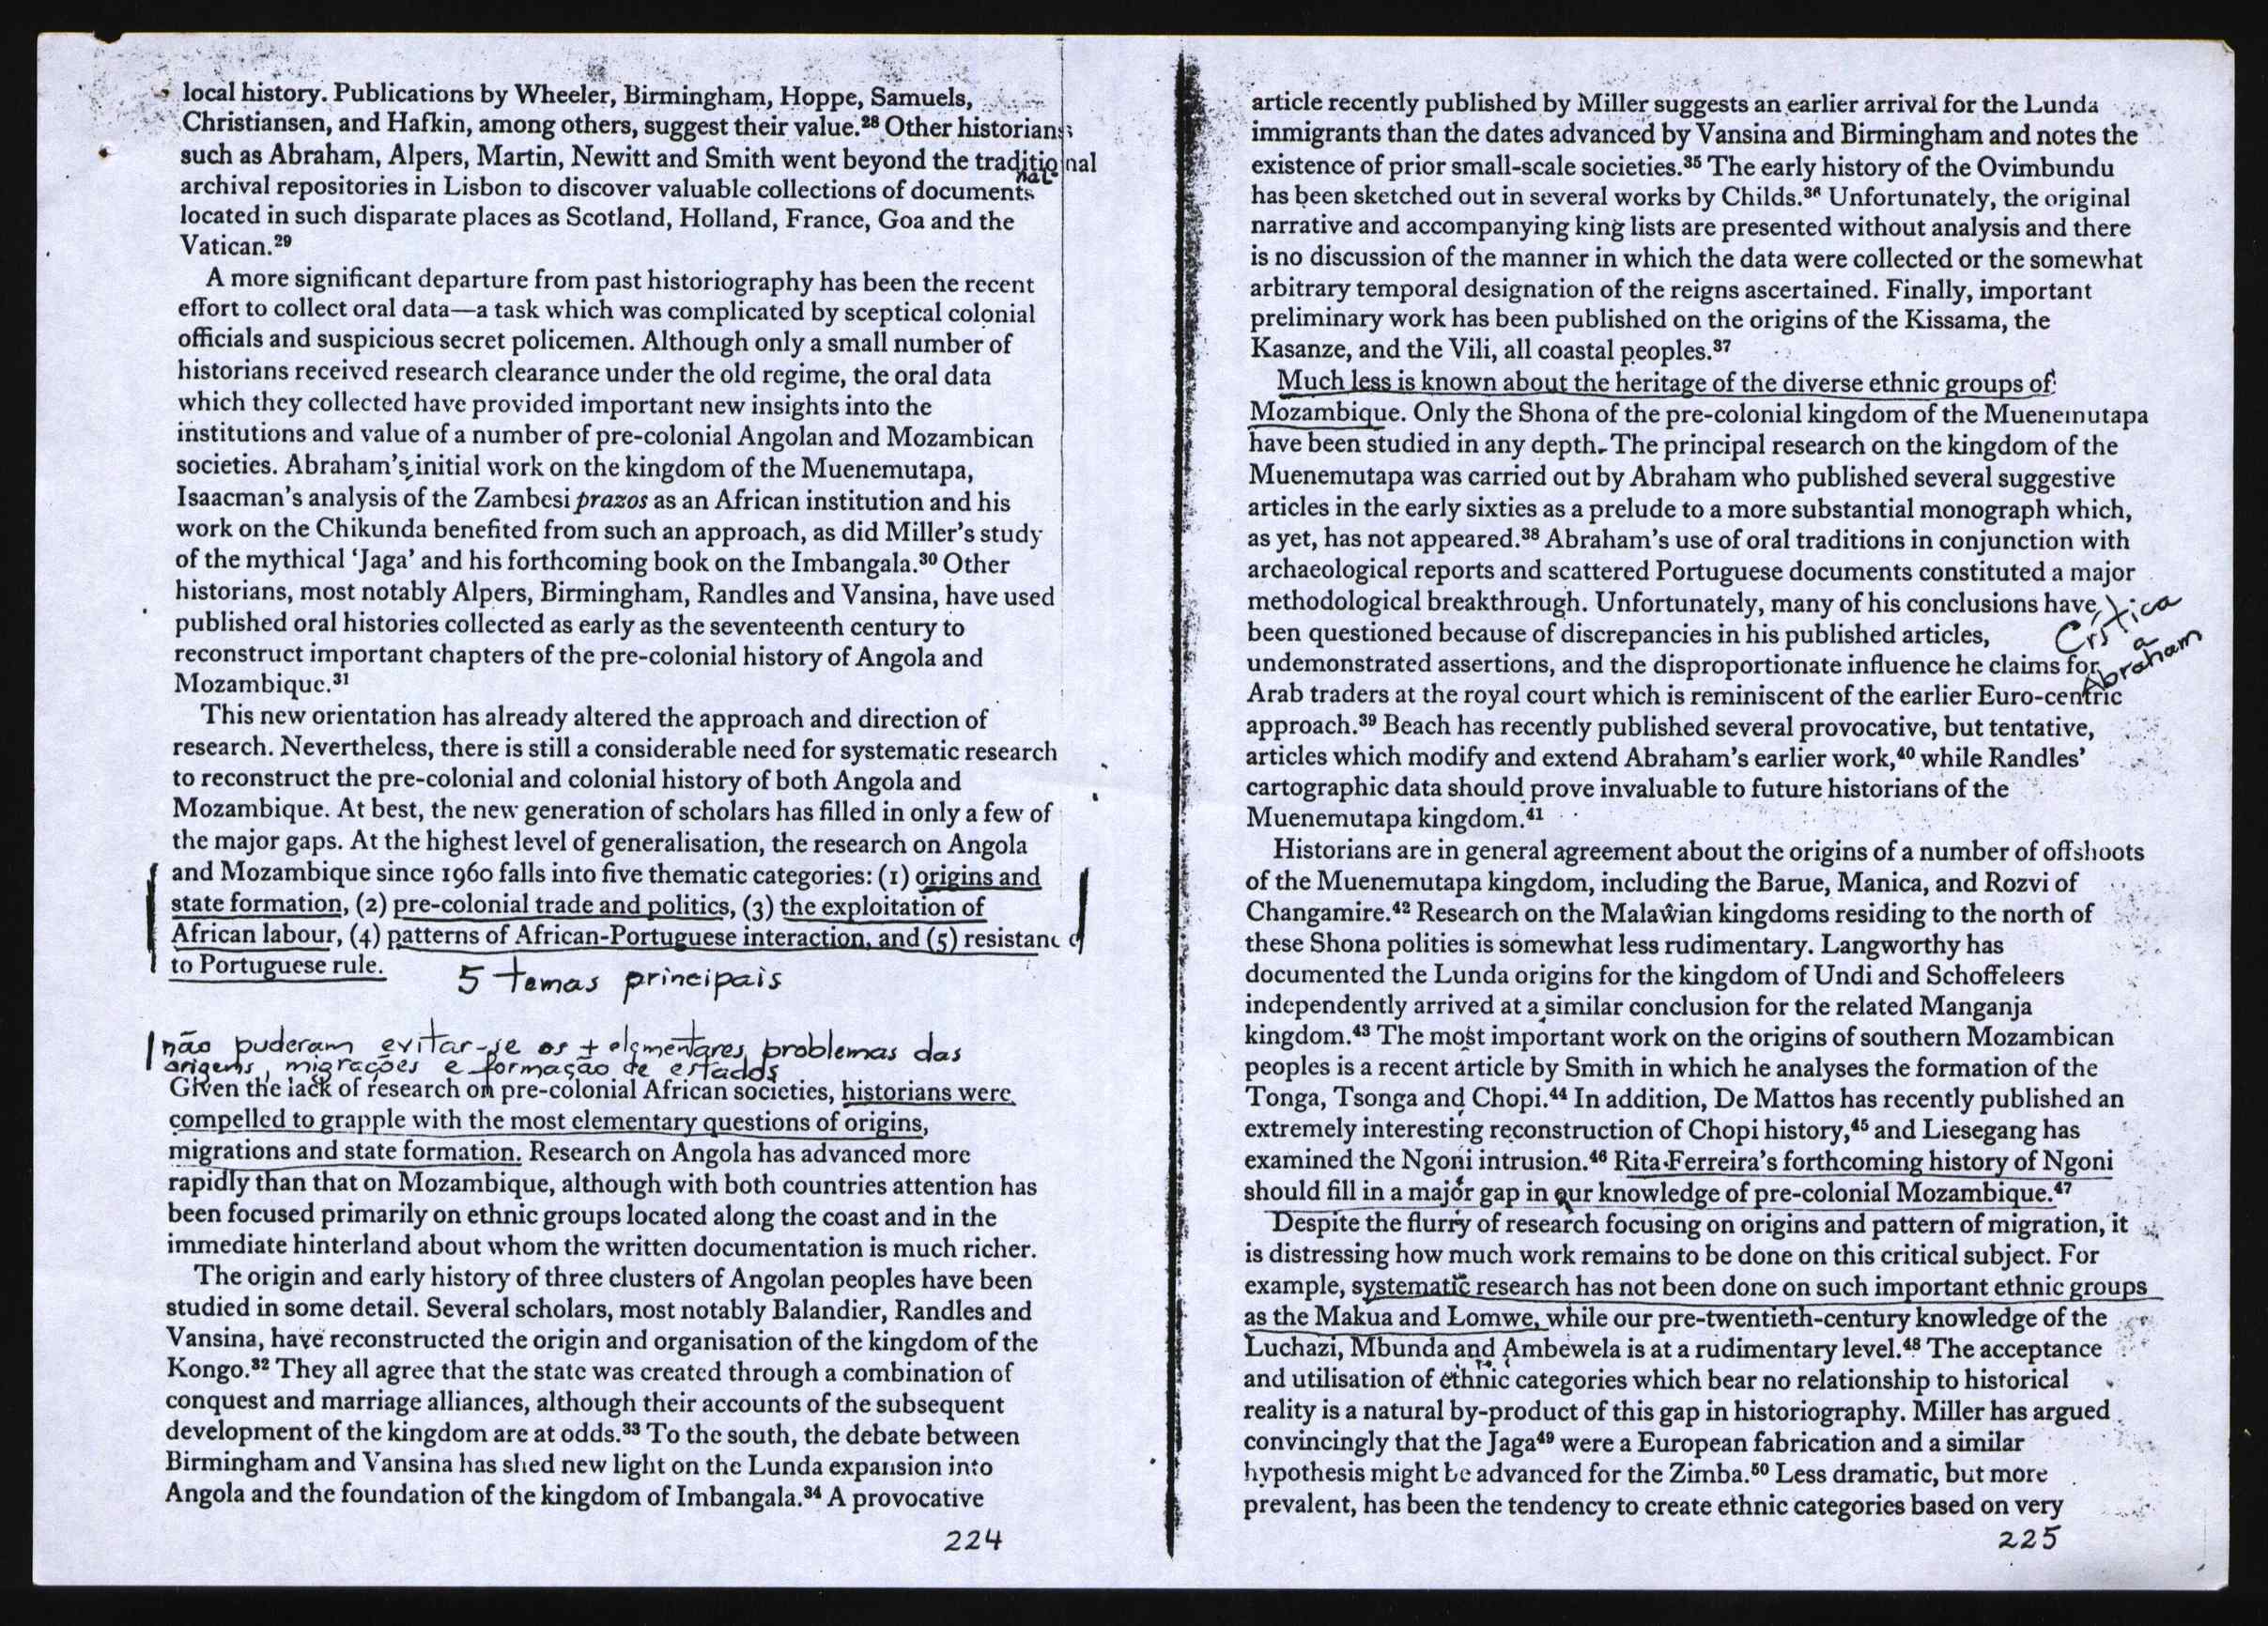 local history. Publications by Wheeler, Birmingham, Hoppe, Samuels,
Christiansen, and Hafkin, among others, suggest their value.²⁸ Other historians
such as Abraham, Alpers, Martin, Newitt and Smith went beyond the traditional
nal
archival repositories in Lisbon to discover valuable collections of documents
located in such disparate places as Scotland, Holland, France, Goa and the
Vatican.²⁹
A more significant departure from past historiography has been the recent
effort to collect oral data—a task which was complicated by sceptical colonial
officials and suspicious secret policemen. Although only a small number of
historians received research clearance under the old regime, the oral data
which they collected have provided important new insights into the
institutions and value of a number of pre-colonial Angolan and Mozambican
societies. Abraham's initial work on the kingdom of the Muenemutapa,
Isaacman's analysis of the Zambesi prazos as an African institution and his
work on the Chikunda benefited from such an approach, as did Miller's study
of the mythical 'Jaga' and his forthcoming book on the Imbangala.³⁰ Other
historians, most notably Alpers, Birmingham, Randles and Vansina, have used
published oral histories collected as early as the seventeenth century to
reconstruct important chapters of the pre-colonial history of Angola and
Mozambique.³¹
This new orientation has already altered the approach and direction of
research. Nevertheless, there is still a considerable need for systematic research
to reconstruct the pre-colonial and colonial history of both Angola and
Mozambique. At best, the new generation of scholars has filled in only a few of
the major gaps. At the highest level of generalisation, the research on Angola
and Mozambique since 1960 falls into five thematic categories: (1) origins and
state formation, (2) pre-colonial trade and politics, (3) the exploitation of
African labour, (4) patterns of African-Portuguese interaction, and (5) resistance
to Portuguese rule.
5 temas principais
não puderam evitar-se os + elementares problemas das
origens, migrações e formação de estados
Given the lack of research on pre-colonial African societies, historians were
compelled to grapple with the most elementary questions of origins,
migrations and state formation. Research on Angola has advanced more
rapidly than that on Mozambique, although with both countries attention has
been focused primarily on ethnic groups located along the coast and in the
immediate hinterland about whom the written documentation is much richer.
The origin and early history of three clusters of Angolan peoples have been
studied in some detail. Several scholars, most notably Balandier, Randles and
Vansina, have reconstructed the origin and organisation of the kingdom of the
Kongo.³² They all agree that the state was created through a combination of
conquest and marriage alliances, although their accounts of the subsequent
development of the kingdom are at odds.³³ To the south, the debate between
Birmingham and Vansina has shed new light on the Lunda expansion into
Angola and the foundation of the kingdom of Imbangala.³⁴ A provocative
224
article recently published by Miller suggests an earlier arrival for the Lunda
immigrants than the dates advanced by Vansina and Birmingham and notes the
existence of prior small-scale societies.³⁵ The early history of the Ovimbundu
has been sketched out in several works by Childs.³⁶ Unfortunately, the original
narrative and accompanying king lists are presented without analysis and there
is no discussion of the manner in which the data were collected or the somewhat
arbitrary temporal designation of the reigns ascertained. Finally, important
preliminary work has been published on the origins of the Kissama, the
Kasanze, and the Vili, all coastal peoples.³⁷
Much less is known about the heritage of the diverse ethnic groups of
Mozambique. Only the Shona of the pre-colonial kingdom of the Muenemutapa
have been studied in any depth. The principal research on the kingdom of the
Muenemutapa was carried out by Abraham who published several suggestive
articles in the early sixties as a prelude to a more substantial monograph which,
as yet, has not appeared.³⁸ Abraham's use of oral traditions in conjunction with
archaeological reports and scattered Portuguese documents constituted a major
methodological breakthrough. Unfortunately, many of his conclusions have
been questioned because of discrepancies in his published articles,
undemonstrated assertions, and the disproportionate influence he claims for
Arab traders at the royal court which is reminiscent of the earlier Euro-centric
Crítica
a
Abraham
approach.³⁹ Beach has recently published several provocative, but tentative,
articles which modify and extend Abraham's earlier work,⁴⁰ while Randles'
cartographic data should prove invaluable to future historians of the
Muenemutapa kingdom.⁴¹
Historians are in general agreement about the origins of a number of offshoots
of the Muenemutapa kingdom, including the Barue, Manica, and Rozvi of
Changamire.⁴² Research on the Malaŵian kingdoms residing to the north of
these Shona polities is somewhat less rudimentary. Langworthy has
documented the Lunda origins for the kingdom of Undi and Schoffeleers
independently arrived at a similar conclusion for the related Manganja
kingdom.⁴³ The most important work on the origins of southern Mozambican
peoples is a recent article by Smith in which he analyses the formation of the
Tonga, Tsonga and Chopi.⁴⁴ In addition, De Mattos has recently published an
extremely interesting reconstruction of Chopi history,⁴⁵ and Liesegang has
examined the Ngoni intrusion.⁴⁶ Rita-Ferreira's forthcoming history of Ngoni
should fill in a major gap in our knowledge of pre-colonial Mozambique.⁴⁷
Despite the flurry of research focusing on origins and pattern of migration, it
is distressing how much work remains to be done on this critical subject. For
example, systematic research has not been done on such important ethnic groups
as the Makua and Lomwe, while our pre-twentieth-century knowledge of the
Luchazi, Mbunda and Ambewela is at a rudimentary level.⁴⁸ The acceptance
and utilisation of ethnic categories which bear no relationship to historical
reality is a natural by-product of this gap in historiography. Miller has argued
convincingly that the Jaga⁴⁹ were a European fabrication and a similar
hypothesis might be advanced for the Zimba.⁵⁰ Less dramatic, but more
prevalent, has been the tendency to create ethnic categories based on very
225